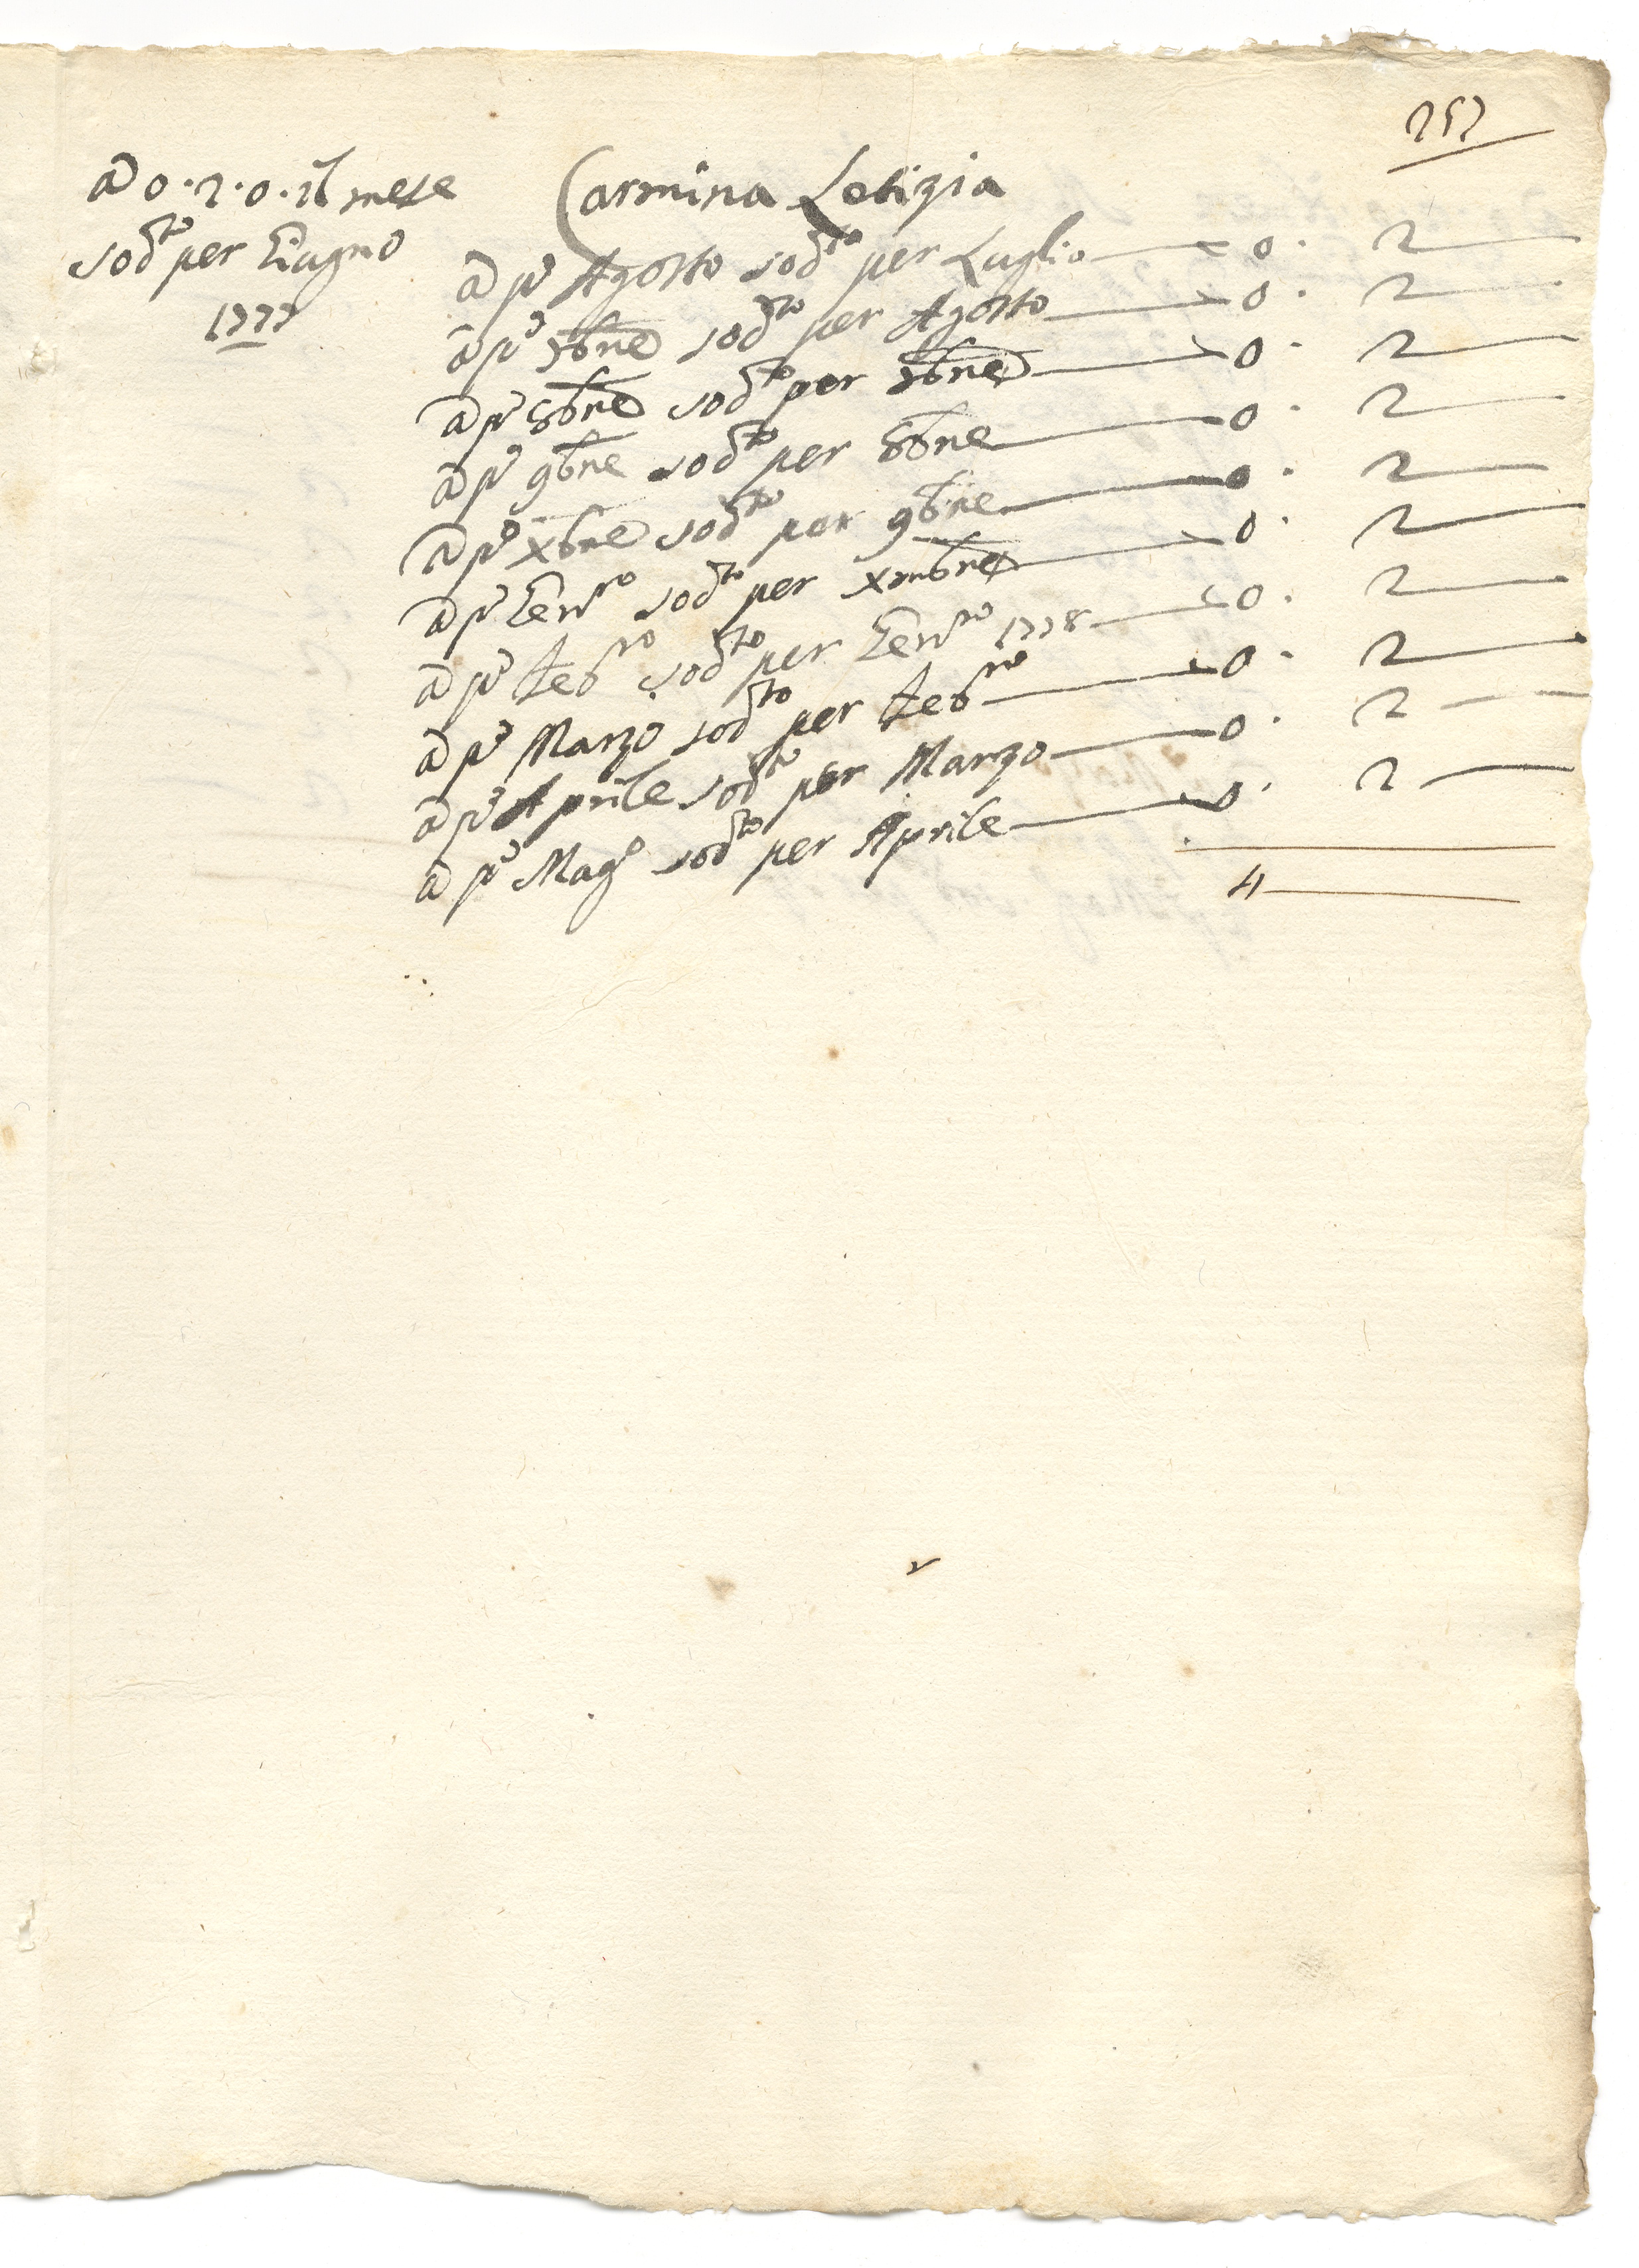 257
Carmina Letizia
a 0.2.0. il mese
sod.to per Giugno
1777
a p.o Agosto sod.to per Luglio — 0. 2 —
a p.o 7bre sod.to per Agosto — 0. 2 —
a p.o 8bre sod.to per 7bre — 0. 2 —
a p.o 9bre sod.to per 8bre — 0. 2 —
a p.o xbre sod.to per 9bre — 0. 2 —
a p.o Genn.ro sod.to per xmbre — 0. 2 —
a p.o Feb.ro sod.to per Genn.ro 1778 — 0. 2 —
a p.o Marzo sod.to per Feb.ro — 0. 2 —
a p.o Aprile sod.to per Marzo — 0. 2 —
a p.o Mag.o sod.to per Aprile — 0. 2 —
4 —